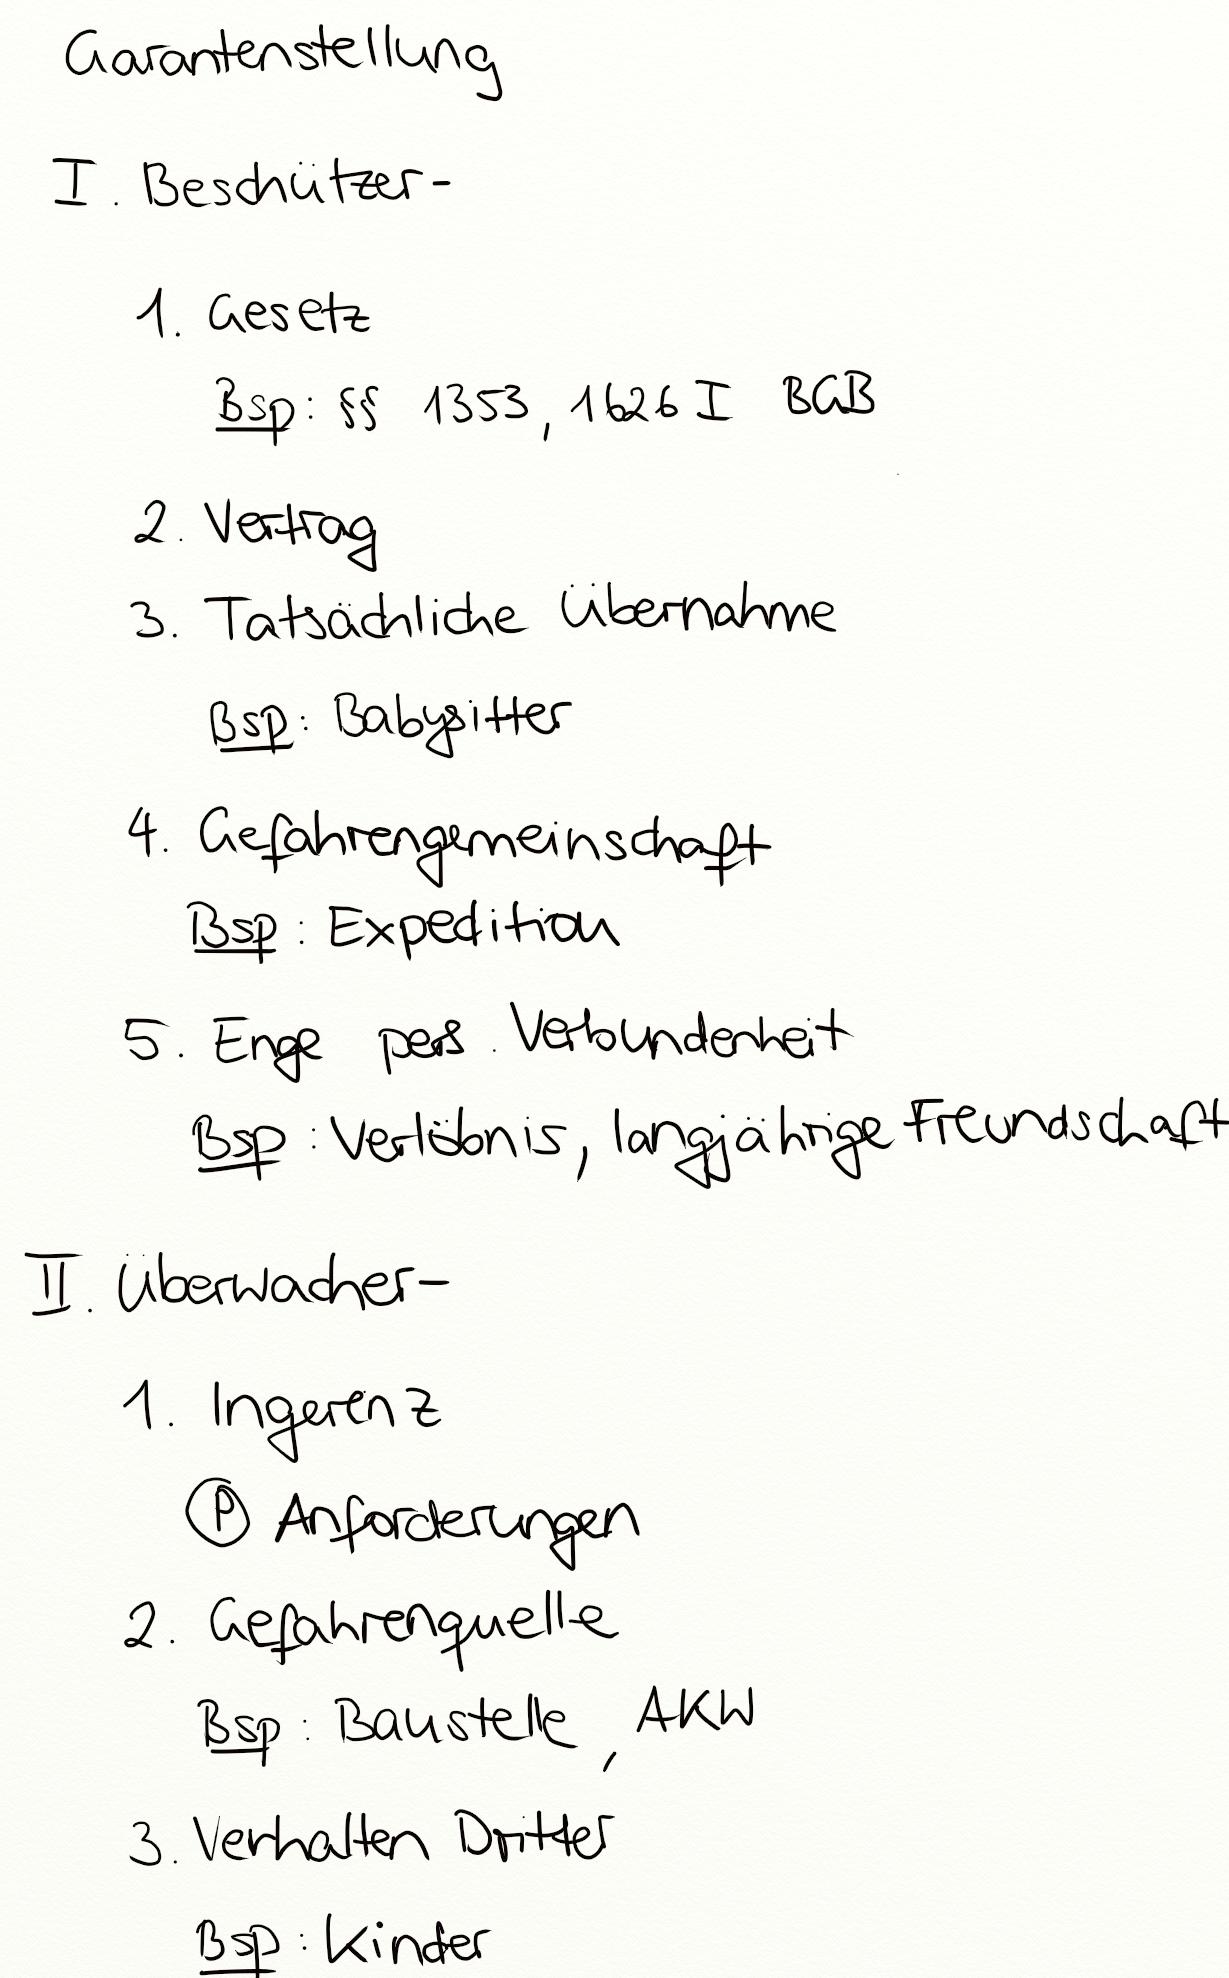 Garantenstellung
I. Beschützer-
1. Gesetz
Bsp: §§ 1353, 1626 I BGB
2. Vertrag
3. Tatsächliche Übernahme
Bsp: Babysitter
4. Gefahrengemeinschaft
Bsp: Expedition
5. Enge pers. Verbundenheit
Bsp: Verlöbnis, langjährige Freundschaft
II. Überwacher-
1. Ingerenz
Ⓟ Anforderungen
2. Gefahrenquelle
Bsp: Baustelle, AKW
3. Verhalten Dritter
Bsp: Kinder